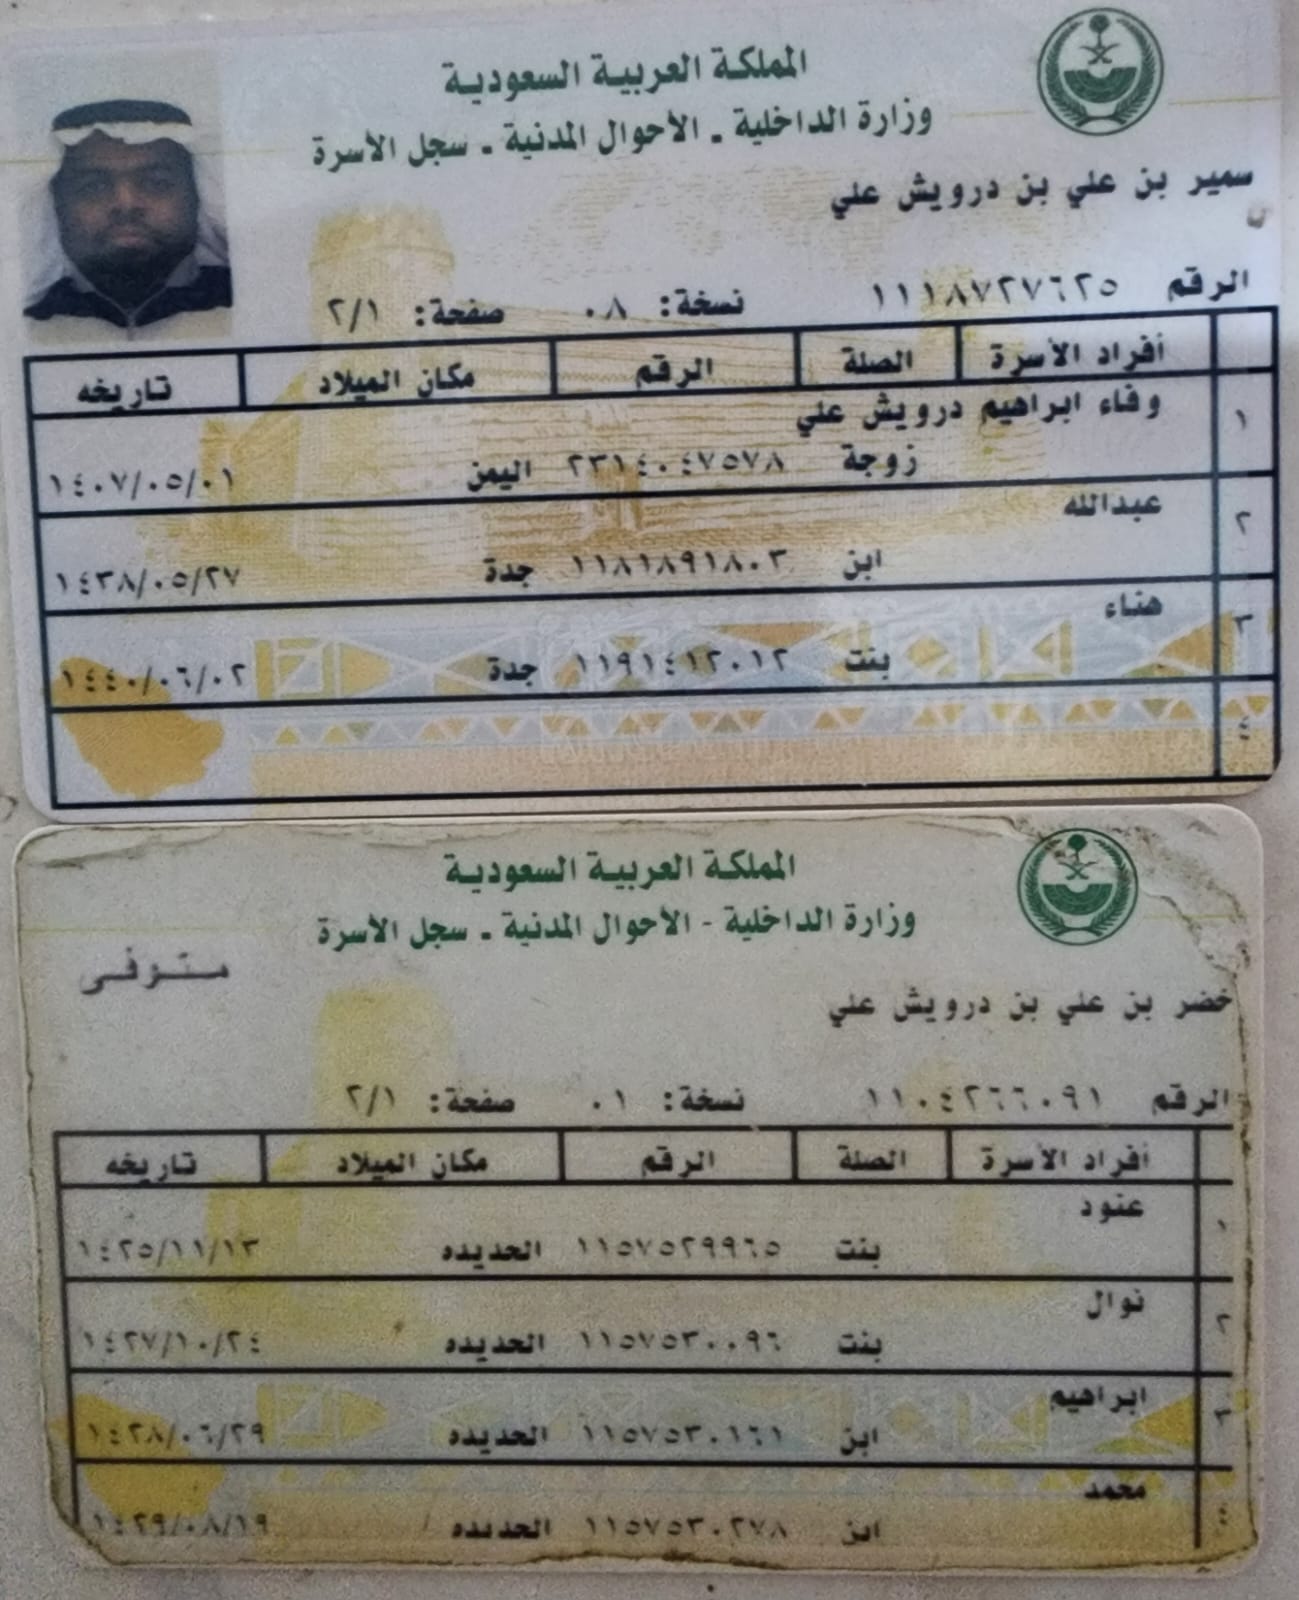 المملكة العربية السعودية
وزارة الداخلية - الأحوال المدنية - سجل الأسرة
سمير بن علي بن درويش علي
الرقم ١١١٨٧٢٧٦٢٥ نسخة: ٠٨ صفحة: ٢/١
أفراد الأسرة الصلة الرقم مكان الميلاد تاريخه
١ وفاء ابراهيم درويش علي
زوجة ٢٣١٤٠٤٧٥٧٨ اليمن ١٤٠٧/٠٥/٠١
٢ عبدالله
ابن ١١٨١٨٩١٨٠٣ جدة ١٤٣٨/٠٥/٢٧
٣ هناء
بنت ١١٩١٤١٢٠١٢ جدة ١٤٤٠/٠٦/٠٢
٤
المملكة العربية السعودية
وزارة الداخلية - الأحوال المدنية - سجل الأسرة
متوفى
خضر بن علي بن درويش علي
الرقم ١١٠٤٢٦٦٠٩١ نسخة: ٠١ صفحة: ٢/١
أفراد الأسرة الصلة الرقم مكان الميلاد تاريخه
١ عنود
بنت ١١٥٧٥٢٩٩٦٥ الحديده ١٤٢٥/١١/١٣
٢ نوال
بنت ١١٥٧٥٣٠٠٩٦ الحديده ١٤٢٧/١٠/٢٤
٣ ابراهيم
ابن ١١٥٧٥٣٠١٦١ الحديده ١٤٢٨/٠٦/٢٩
٤ محمد
ابن ١١٥٧٥٣٠٢٧٨ الحديده ١٤٢٩/٠٨/١٩